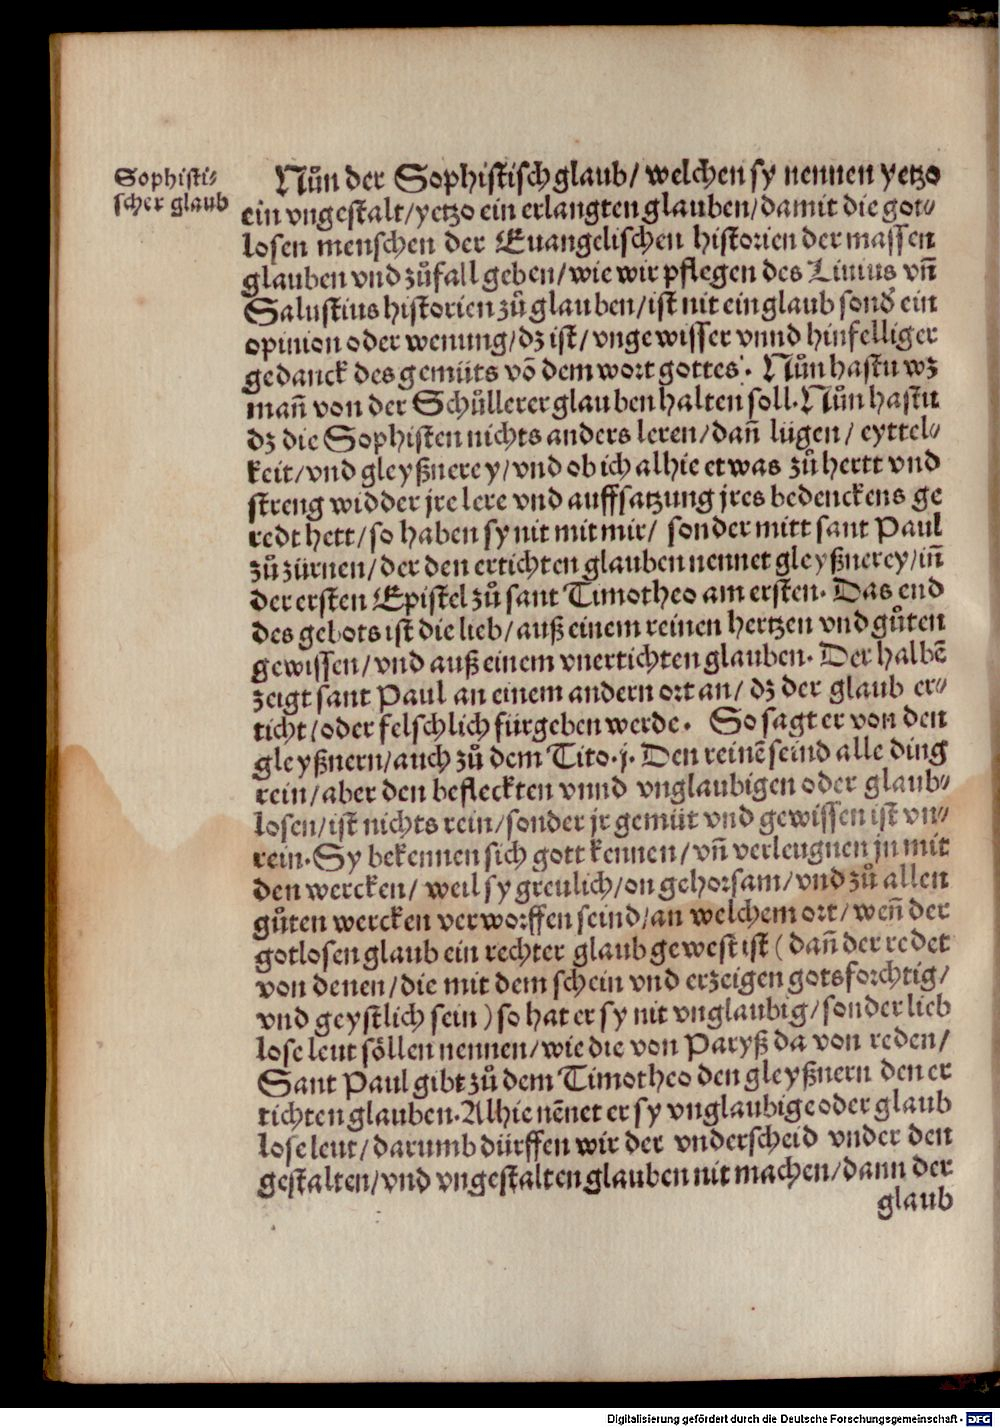 Sophisti-
scher glaub
Nůn der Sophistisch glaub/ welchen sy nennen yetzo
ein vngestalt/yetzo ein erlangten glauben/damit die got-
losen menschen der Euangelischen historien der massen
glauben vnd zůfall geben/wie wir pflegen des Liuius vñ
Salustius historien zů glauben/ist nit ein glaub sonď ein
opinion oder wenung/dz ist/ vngewisser vnnd hinfelliger
gedanck des gemüts võ dem wort gottes. Nůn hastu wz
mañ von der Schůllerer glauben halten soll. Nůn hastu
dz die Sophisten nichts anders leren/dañ lügen/ eyttel-
keit/vnd gleyßnerey/vnd ob ich alhie etwas zů hertt vnd
streng widder jre lere vnd auffsatzung jres bedenckens ge
redt hett/so haben sy nit mit mir/ sonder mitt sant Paul
zů zürnen/der den ertichten glauben nennet gleyßnerey/iñ
der ersten Epistel zů sant Timotheo am ersten. Das end
des gebots ist die lieb/auß einem reinen hertzen vnd gůten
gewissen/vnd auß einem vnertichten glauben. Der halbē
zeigt sant Paul an einem andern ort an/ dz der glaub er-
ticht/oder felschlich fürgeben werde. So sagt er von den
gleyßnern/auch zů dem Tito.j. Den reinē seind alle ding
rein/aber den befleckten vnnd vnglaubigen oder glaub-
losen/ist nichts rein/sonder jr gemüt vnd gewissen ist vn-
rein. Sy bekennen sich gott kennen/vñ verleugnen jn mit
den wercken/ weil sy greulich/on gehorsam/vnd zů allen
gůten wercken verworffen seind/an welchem ort/weñ der
gotlosen glaub ein rechter glaub gewest ist (dañ der redet
von denen/die mit dem schein vnd erzeigen gotsforchtig/
vnd geystlich sein) so hat er sy nit vnglaubig/sonder lieb
lose leut söllen nennen/wie die von Paryß da von reden/
Sant Paul gibt zů dem Timotheo den gleyßnern den er
tichten glauben. Alhie nēnet er sy vnglaubige oder glaub
lose leut/darumb dürffen wir der vnderscheid vnder den
gestalten/vnd vngestalten glauben nit machen/dann der
glaub
Digitalisierung gefördert durch die Deutsche Forschungsgemeinschaft - DFG